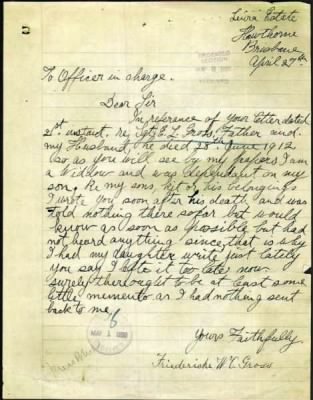 Leura Estate
Hawthorne
Brisbane
April 27th
To Officer in charge.
Dear Sir
In reference of your letter dated
21st. instant. re, Sgt. E. L. Gross, Father and
my Husband, he died 28th June 1912
so as you will see by my papers I am
a Widdow and was dependant on my
son. Re my sons, kit or his belongings
I wrote you soon after his death and was
told nothing there sofar but would
know as soon as possible but had
not heard anything since, that is why
I had my daughter write just lately
you say I left it too late now
surely there ought to be at least some
little memento as I had nothing sent
back to me
Yours Faithfully
Friederiche W. C. Gross